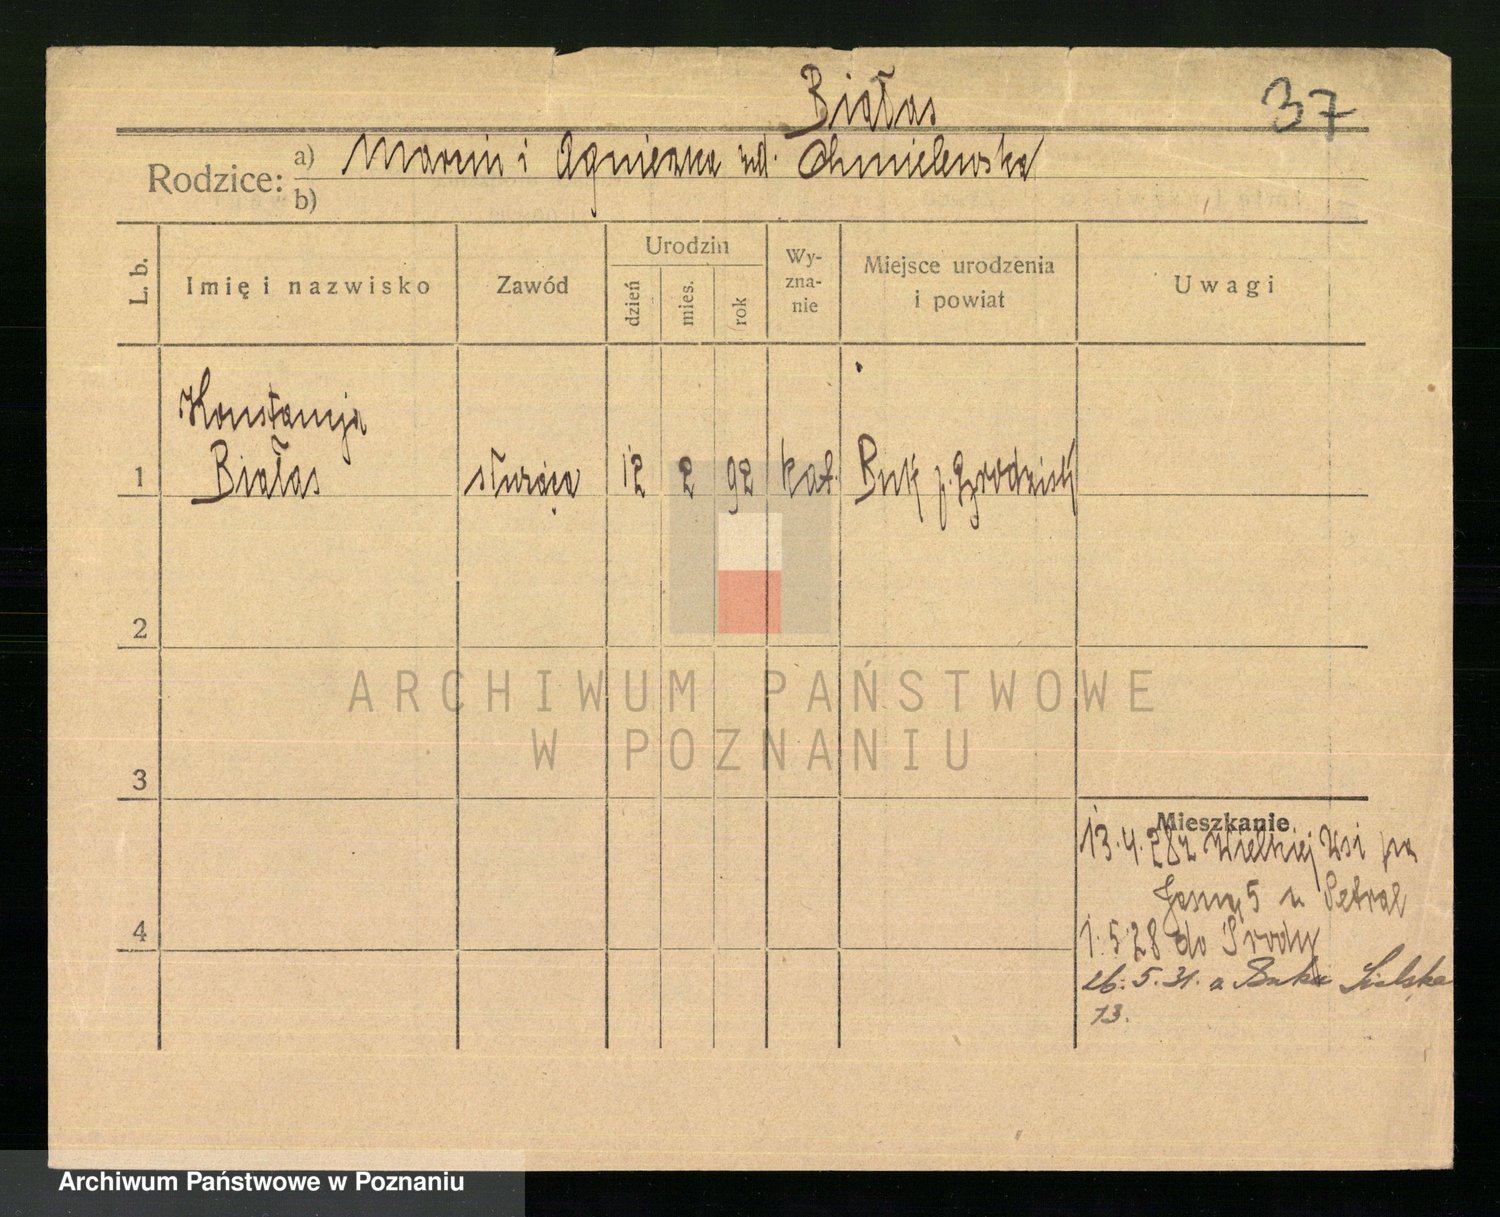 Białas
37
Rodzice: a) Marcin i Agnieszka Chmielewska
b)
L. b.
Imię i nazwisko
Zawód
Urodzin
dzień
mies.
rok
Wy-
zna-
nie
Miejsce urodzenia
i powiat
Uwagi
Konstancja
1 Białas służąca 12 2 92 kat. Buk p. Grodzisk
2
3
4
Mieszkanie
13.4.28 z Wielkiej Wsi
Jasna 5 u
1.5.28 do Środy
26.5.31. z Buku
13.
ARCHIWUM PAŃSTWOWE
W POZNANIU
Archiwum Państwowe w Poznaniu